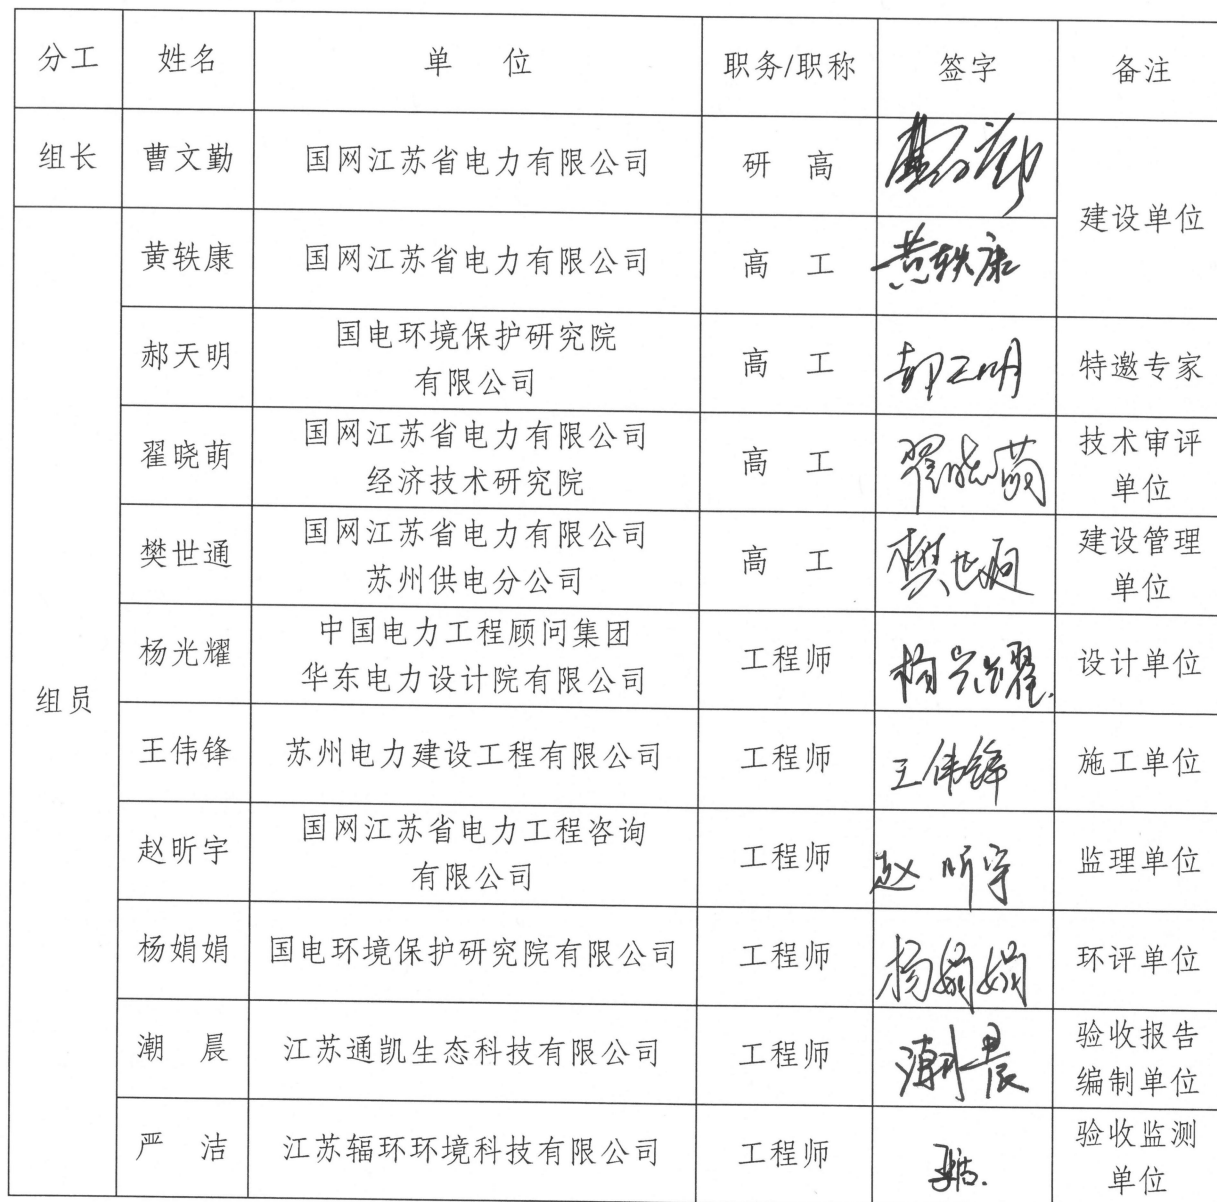 分工 姓名 单 位 职务/职称 签字 备注
组长 曹文勤 国网江苏省电力有限公司 研 高 曹文勤
建设单位
黄轶康 国网江苏省电力有限公司 高 工 黄轶康
郝天明 国电环境保护研究院
有限公司 高 工 郝天明 特邀专家
翟晓萌 国网江苏省电力有限公司
经济技术研究院 高 工 翟晓萌 技术审评
单位
樊世通 国网江苏省电力有限公司
苏州供电分公司 高 工 樊世通 建设管理
单位
组员
杨光耀 中国电力工程顾问集团
华东电力设计院有限公司 工程师 杨光耀. 设计单位
王伟锋 苏州电力建设工程有限公司 工程师 王伟锋 施工单位
赵昕宇 国网江苏省电力工程咨询
有限公司 工程师 赵昕宇 监理单位
杨娟娟 国电环境保护研究院有限公司 工程师 杨娟娟 环评单位
潮 晨 江苏通凯生态科技有限公司 工程师 潮晨 验收报告
编制单位
严 洁 江苏辐环环境科技有限公司 工程师 严洁. 验收监测
单位